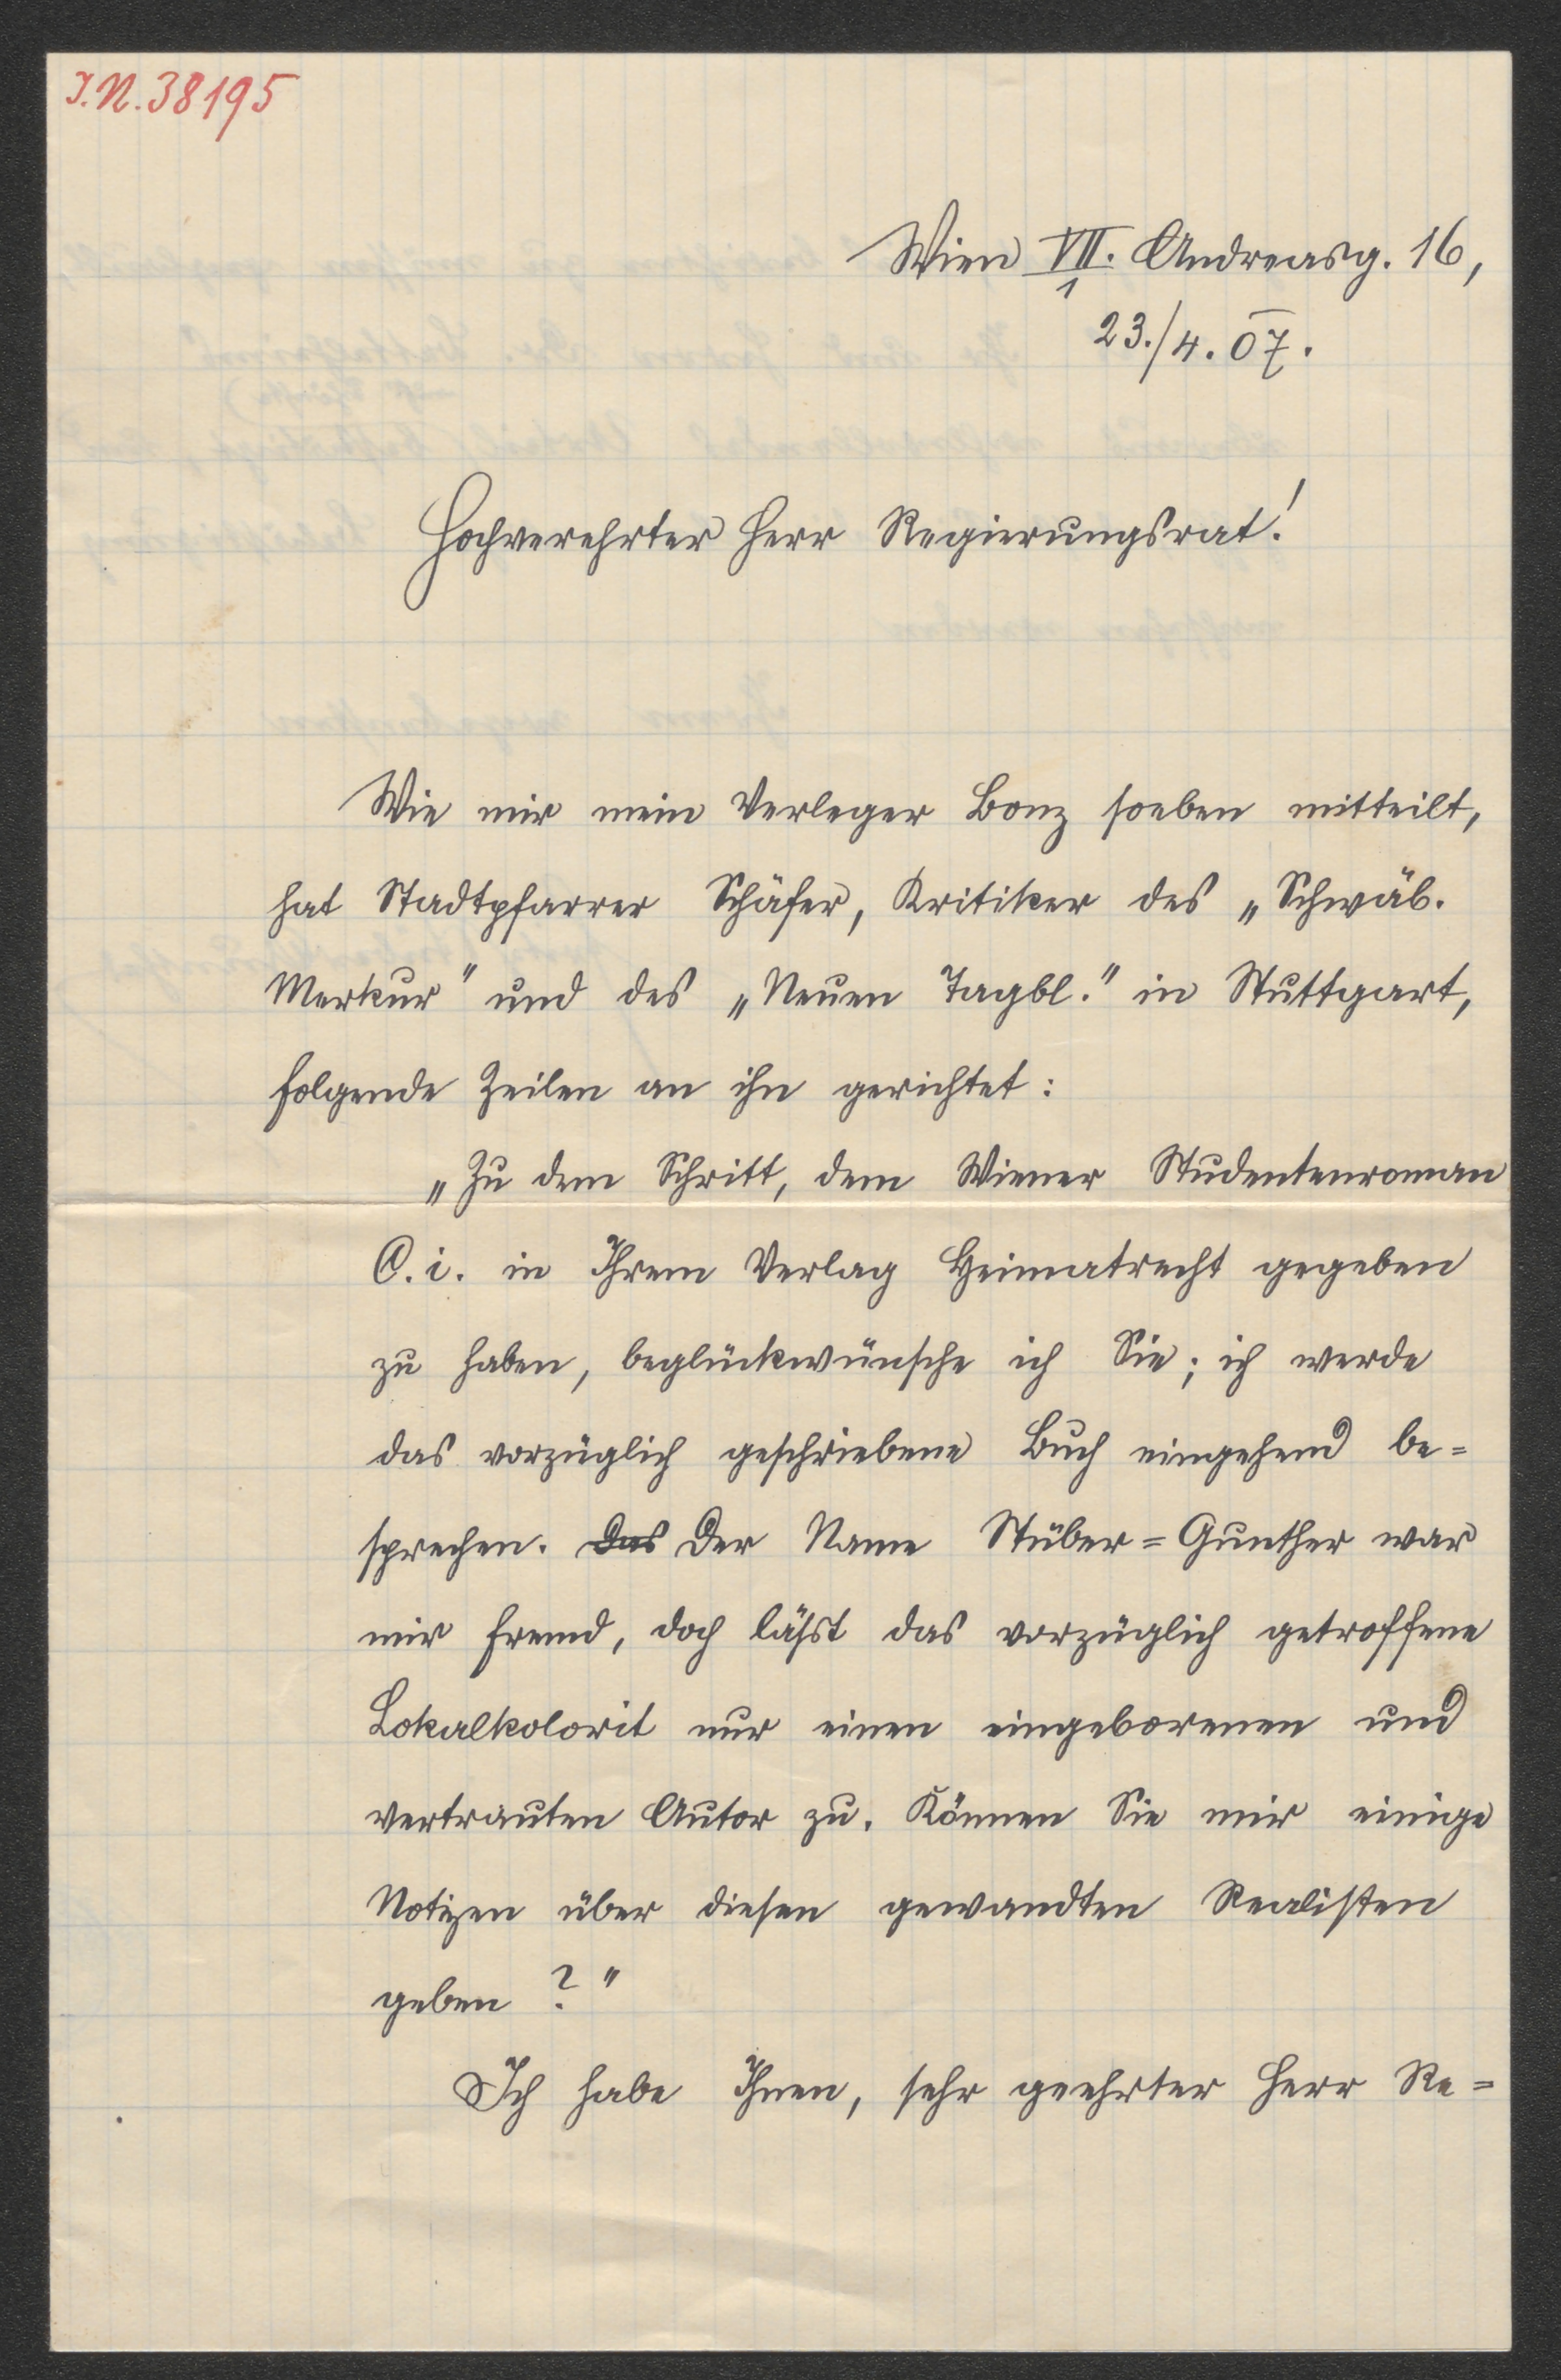 I.N. 38195
Wien VII/1. Andreasg. 16,
23./4. 07.
Hochverehrter Herr Regierungsrat!
Wie mir mein Verleger Bonz soeben mitteilt,
hat Stadtpfarrer Schäfer, Kritiker des „Schwäb.
Merkur" und des „Neuen Tagbl." in Stuttgart,
folgende Zeilen an ihn gerichtet:
„Zu dem Schritt, dem Wiener Studentenroman
C. i. in Ihrem Verlag Heimatrecht gegeben
zu haben, beglückwünsche ich Sie; ich werde
das vorzüglich geschriebene Buch eingehend be=
sprechen. Das Der Name Stüber=Gunther war
mir fremd, doch läßt das vorzüglich getroffene
Lokalkolorit nur einen eingeborenen und
vertrauten Autor zu. Können Sie mir einige
Notizen über diesen gewandten Realisten
geben?"
Ich habe Ihnen, sehr geehrter Herr Re=